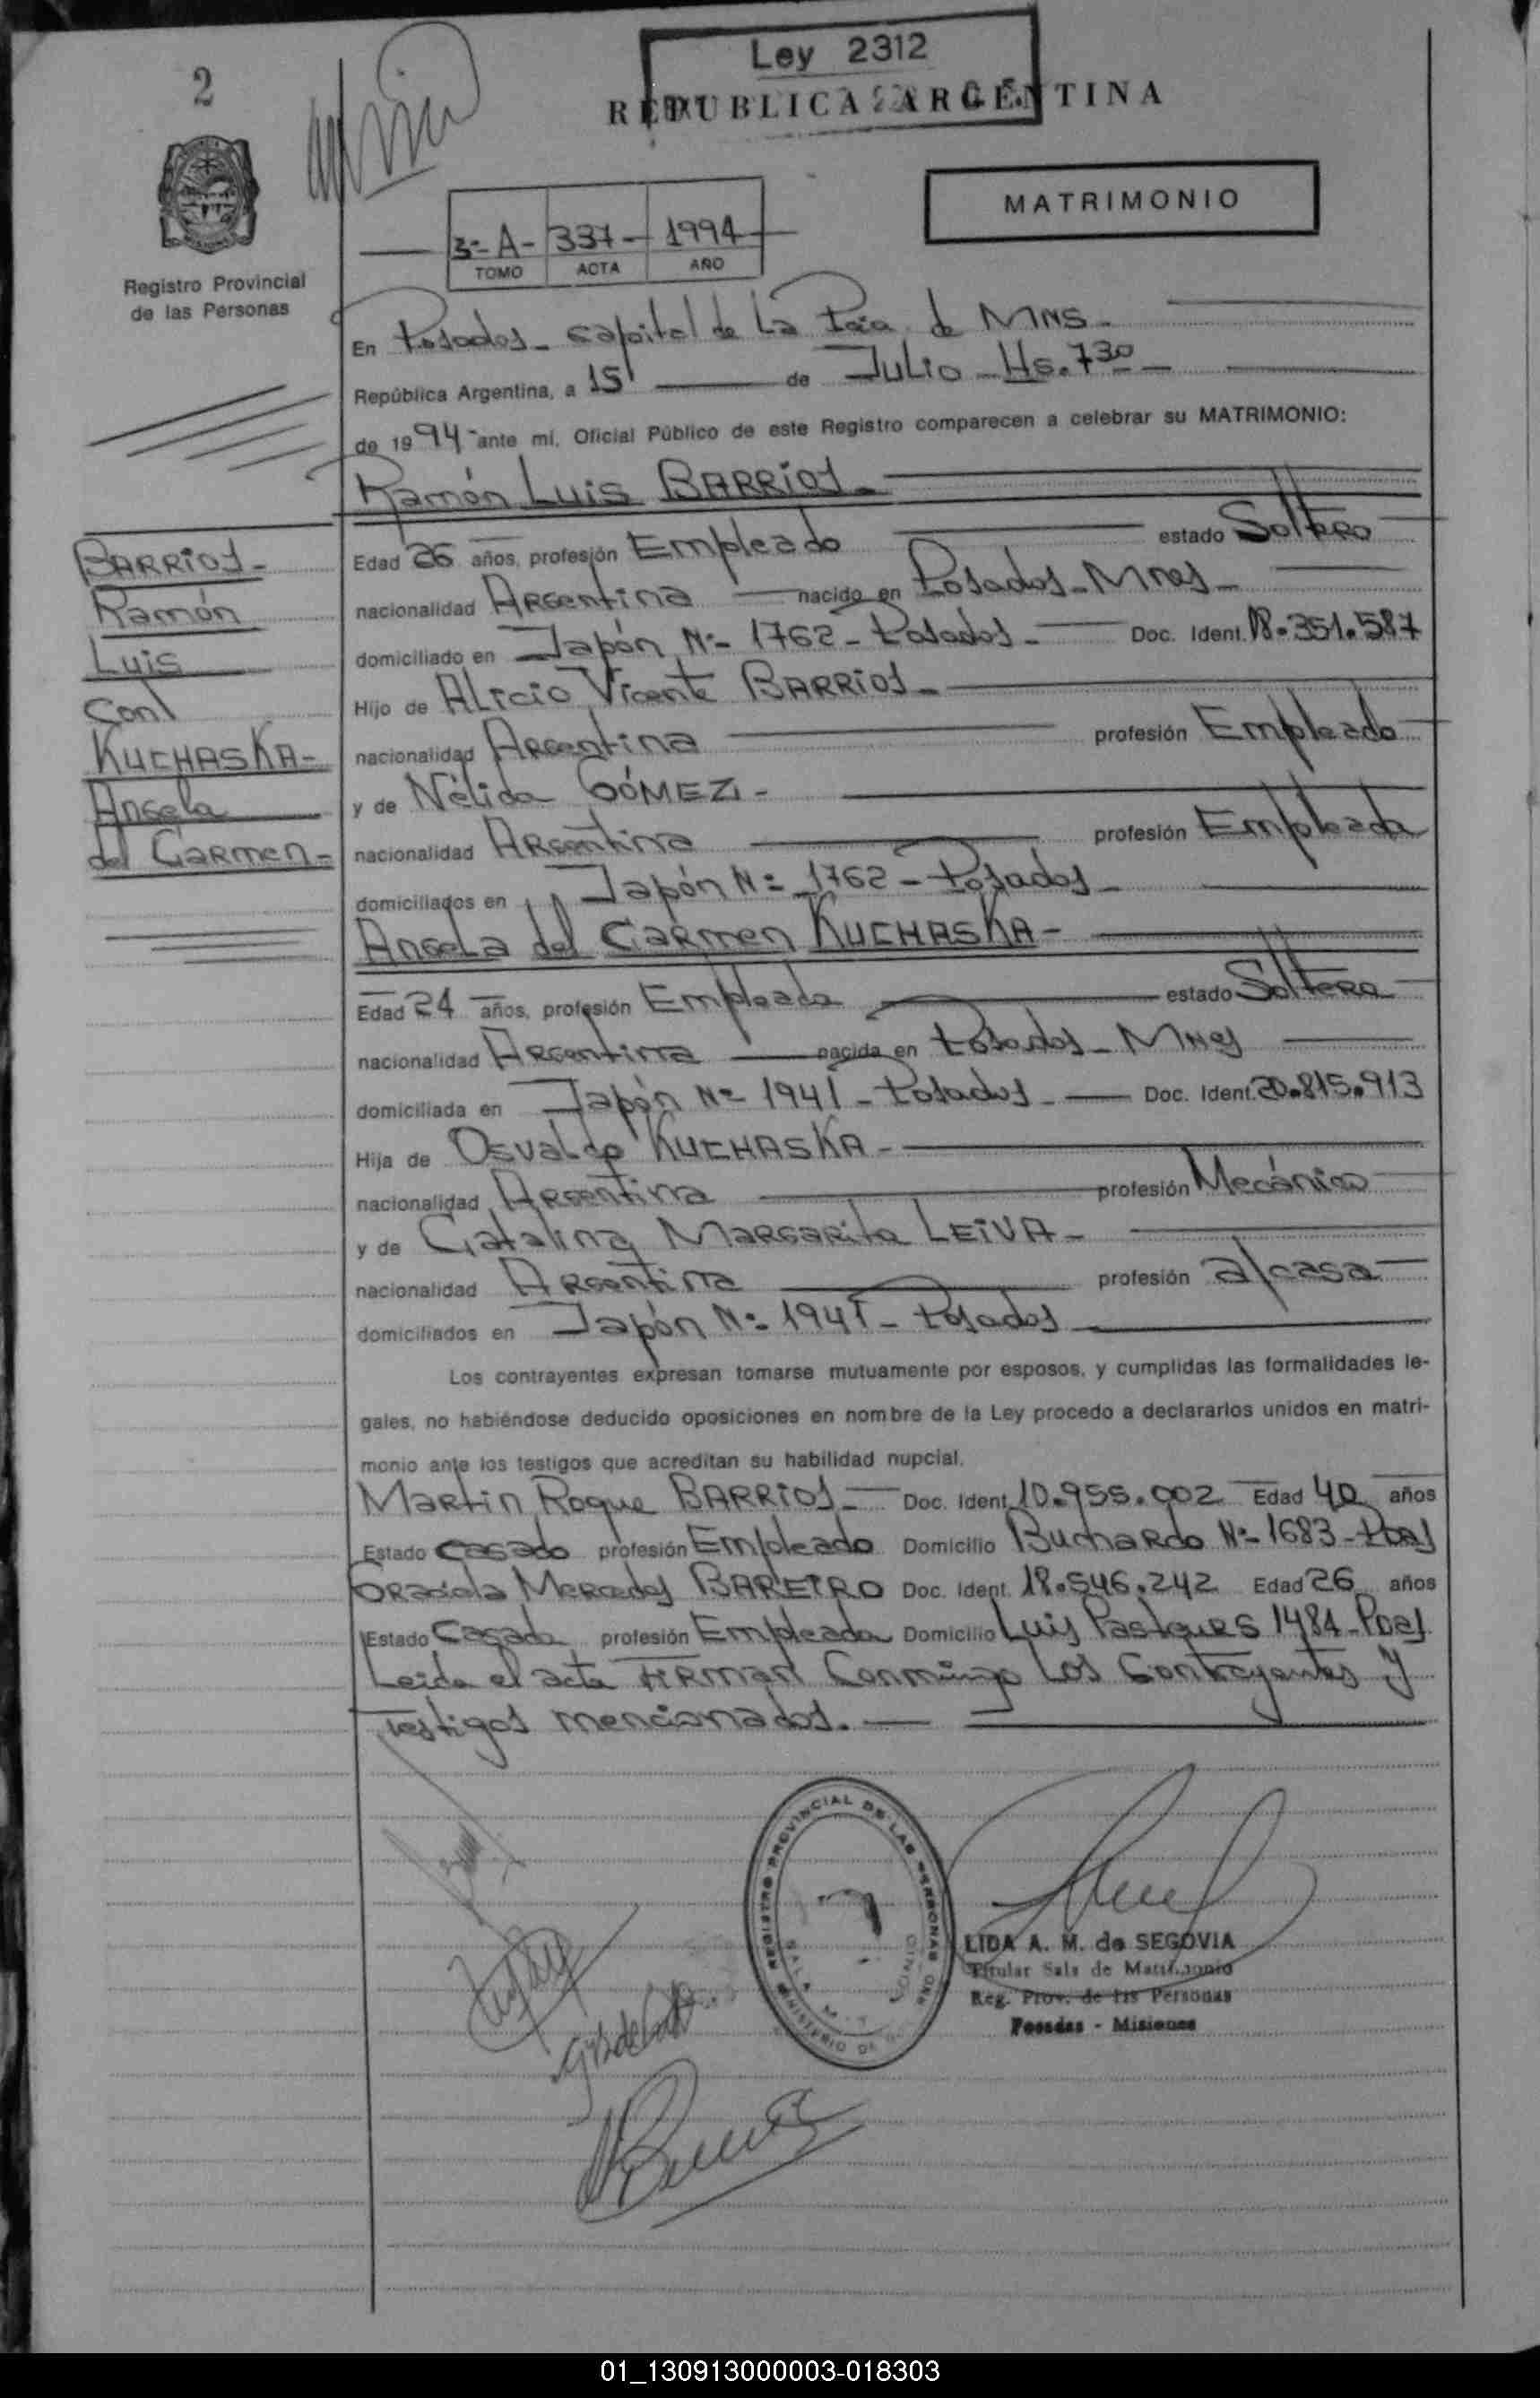 2
Ley 2312
REPUBLICA ARGENTINA
MATRIMONIO
3º- A- 337- 1994
TOMO ACTA AÑO
Registro Provincial
de las Personas
En Posadas- capital de La Pcia de MNS-
República Argentina, a 15 de Julio Hs. 7 30
de 1994 ante mí, Oficial Público de este Registro comparecen a celebrar su MATRIMONIO:
Ramón Luis BARRIOS-
BARRIOS-
Ramón
Luis
Con
KUCHASKA-
Angela
del Carmen-
Edad 26 años, profesión Empleado estado Soltero
nacionalidad Argentina nacido en Posadas- Mnes-
domiciliado en Japón Nº- 1762- Posados- Doc. Ident. 18.351.587
Hijo de Alicio Vicente BARRIOS-
nacionalidad Argentina profesión Empleado
y de Nélida GÓMEZ-
nacionalidad Argentina profesión Empleada
domiciliados en Japón Nº- 1762- Posadas-
Angela del Carmen KUCHASKA-
Edad 24 años, profesión Empleada estado Soltera
nacionalidad Argentina nacida en Posadas- Mnes
domiciliada en Japón Nº- 1941- Posadas- Doc. Ident. 20.815.913
Hija de Osvaldo KUCHASKA-
nacionalidad Argentina profesión Mecánico
y de Catalina Margarita LEIVA-
nacionalidad Argentina profesión a/casa
domiciliados en Japón Nº- 1941- Posadas
Los contrayentes expresan tomarse mutuamente por esposos, y cumplidas las formalidades le-
gales, no habiéndose deducido oposiciones en nombre de la Ley procedo a declararlos unidos en matri-
monio ante los testigos que acreditan su habilidad nupcial.
Martin Roque BARRIOS- Doc. Ident. 10.955.002 Edad 40 años
Estado casado profesión Empleado Domicilio Buchardo Nº- 1683- Pdas
Graciela Mercedes BAREIRO Doc. Ident. 18.546.242 Edad 26 años
Estado Casada profesión Empleada Domicilio Luis Pasteurs 1484- Pdas
Leida el acta Firman Conmigo Los Contrayentes y
Testigos mencionados.-
REGISTRO PROVINCIAL DE LAS PERSONAS
MINISTERIO DE
SALA
LIDA A. M. de SEGOVIA
Titular Sala de Matrimonio
Reg. Prov. de las Personas
Posadas - Misiones
01_130913000003-018303